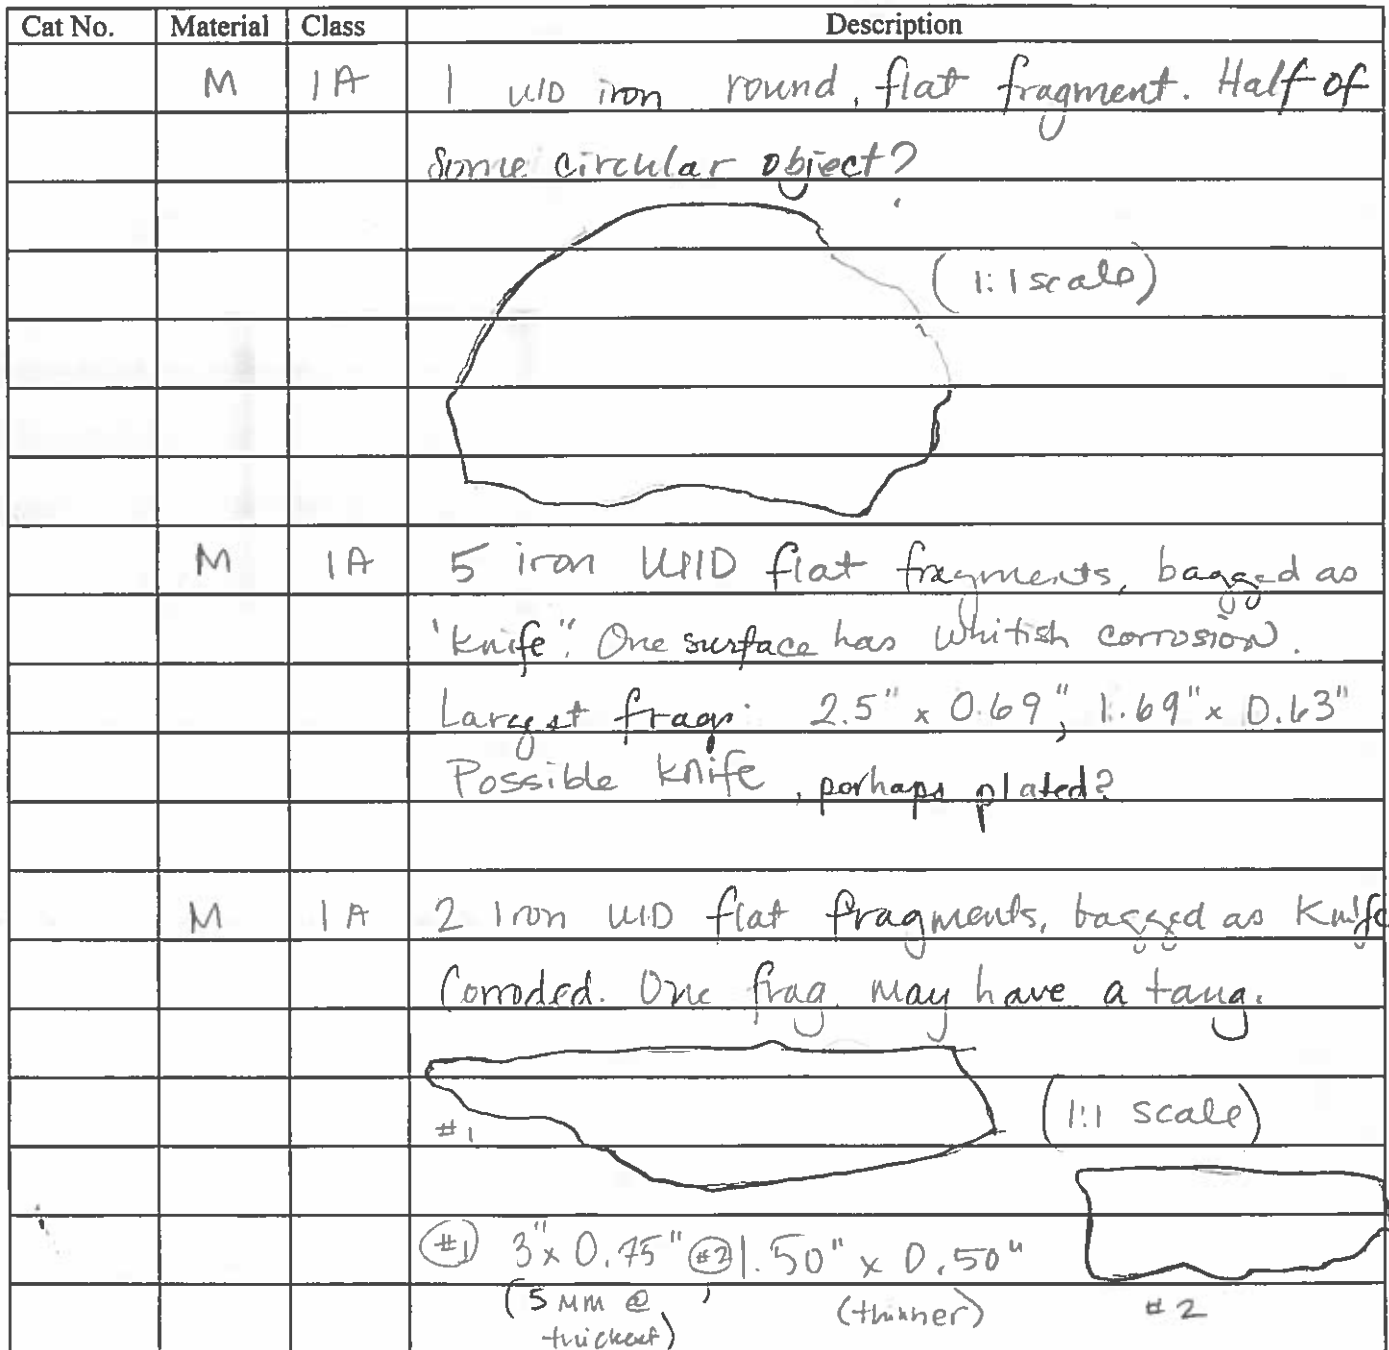 Cat No. Material Class Description
M 1A 1 UID iron round, flat fragment. Half of
some circular object?
(1:1 scale)
M 1A 5 iron UID flat fragments, bagged as
"Knife". One surface has whitish corrosion.
Largest frags: 2.5" x 0.69", 1.69" x 0.63"
Possible knife, perhaps plated?
M 1A 2 Iron UID flat fragments, bagged as Knife
Corroded. One frag. may have a tang.
#1 (1:1 scale)
#1 3" x 0.75", #2 1.50" x 0.50"
(5 mm @ (thinner) #2
thickest)